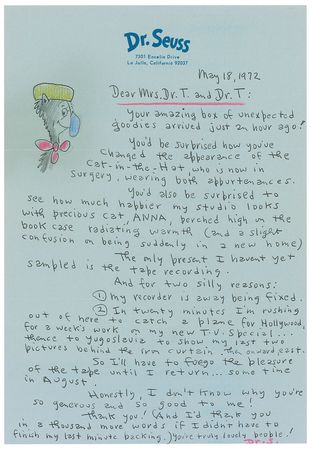 Dr. Seuss
7301 Encelia Drive
La Jolla, California 92037
May 18, 1972
Dear Mrs. Dr. T. and Dr. T:
Your amazing box of unexpected
goodies arrived just an hour ago!
You'd be surprised how you've
changed the appearance of the
Cat-in-the-Hat who is now in
surgery, wearing both appurtenances.
You'd also be surprised to
see how much happier my studio looks
with precious cat, ANNA, perched high on the
book case radiating warmth (and a slight
confusion on being suddenly in a new home)
The only present I havent yet
sampled is the tape recording.
And for two silly reasons:
① my recorder is away being fixed.
② In twenty minutes I'm rushing
out of here to catch a plane for Hollywood,
for a week's work on my new T.V. Special...
thence to Yugoslavia to show my last two
pictures behind the iron curtain. The onward east.
So I'll have to forego the pleasure
of the tape until I return... some time
in August.
Honestly, I don't know why you're
so generous and so good to me!
Thank you! (And I'd thank you
in a thousand more words if I didnt have to
finish my last minute packing.) You're truly lovely people!
Dr. S.